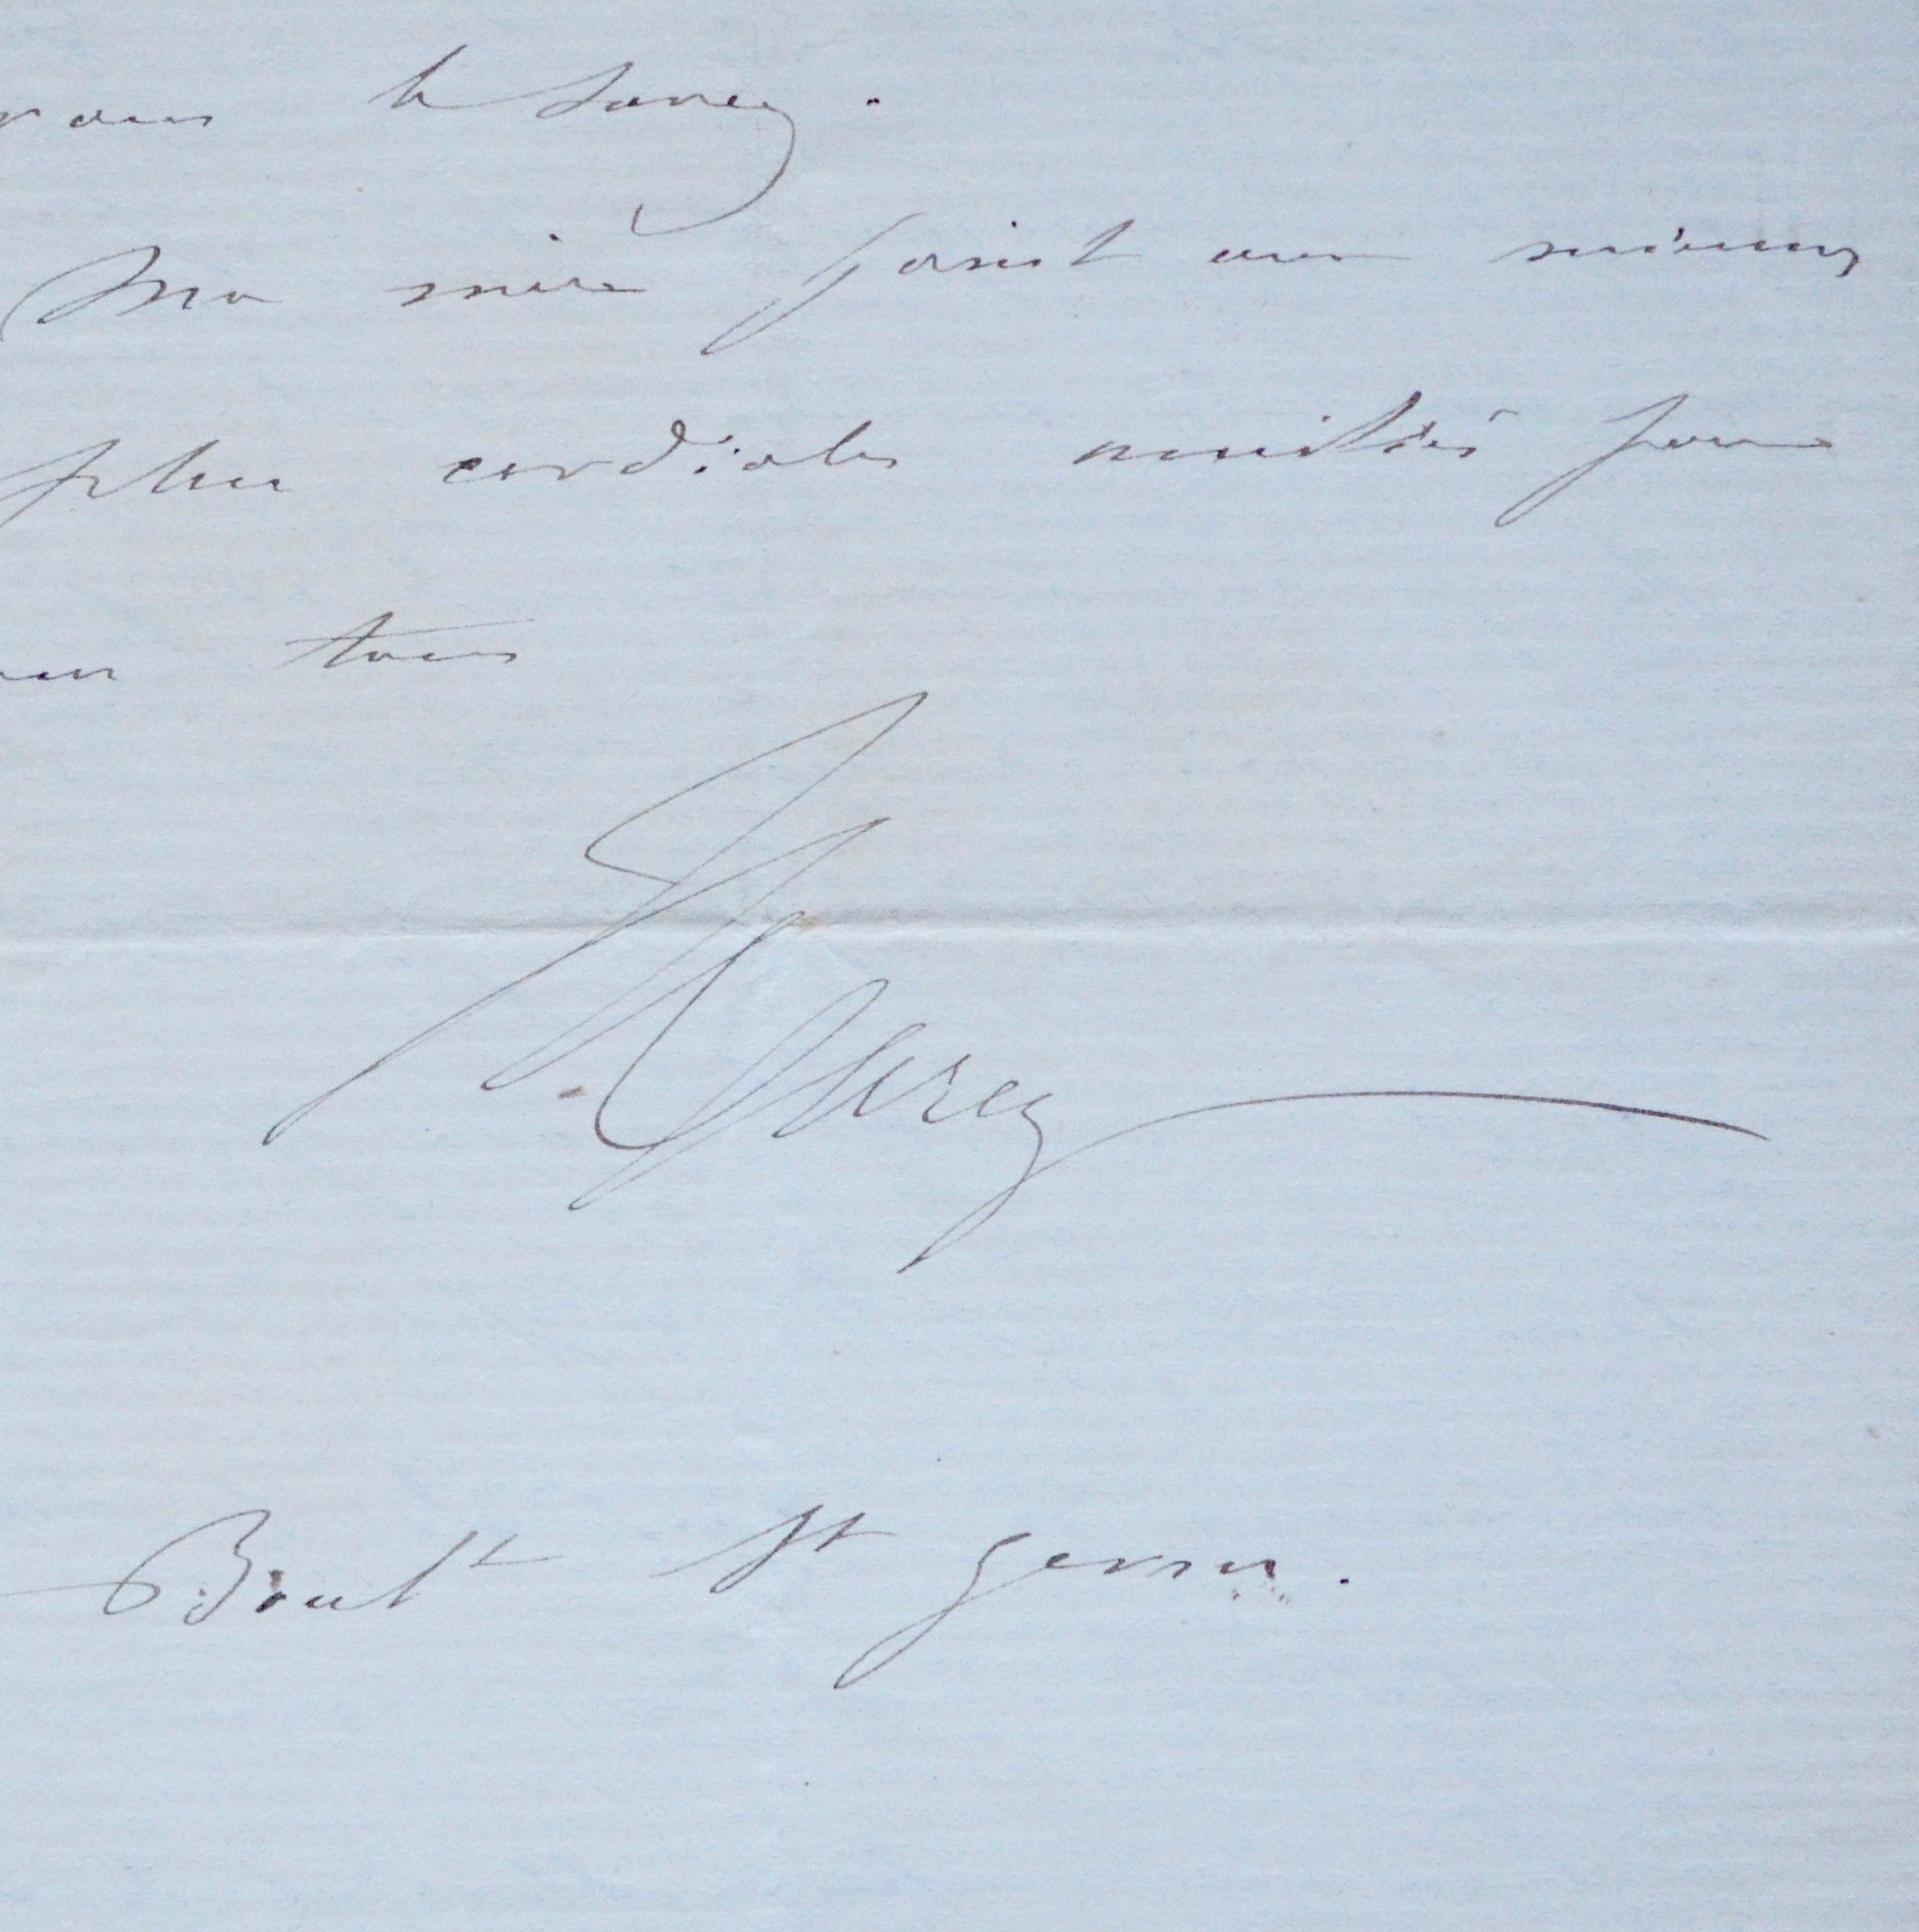 vous le savez.
Ma mère joint aux miennes
plus cordiales amitiés pour
vous tous
EMarey
Boult St germ.